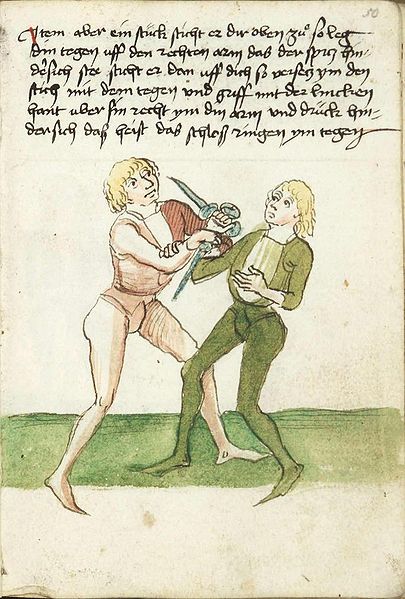 50
Item aber ein stuck sticht er dir oben zuͦ so leg
din tegen vff den rechten arm das der spitz hin
dersich ste sticht er dan vff dich so versetz ym den
stich mit dem tegen vnd griff mit der lincken
hant uber sin recht ym din arm vnd druck hin
dersich das heist das schlosz ringen ym tegen